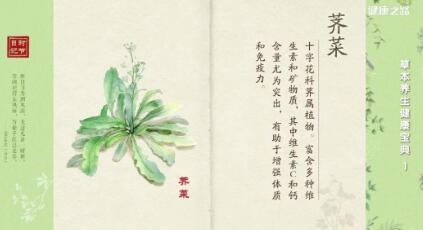 健康之路
草本养生健康宝典
荠菜
十字花科荠属植物。富含多种维
生素和矿物质，其中维生素C和钙
含量尤为突出，有助于增强体质
和免疫力。
荠菜
时节
日记